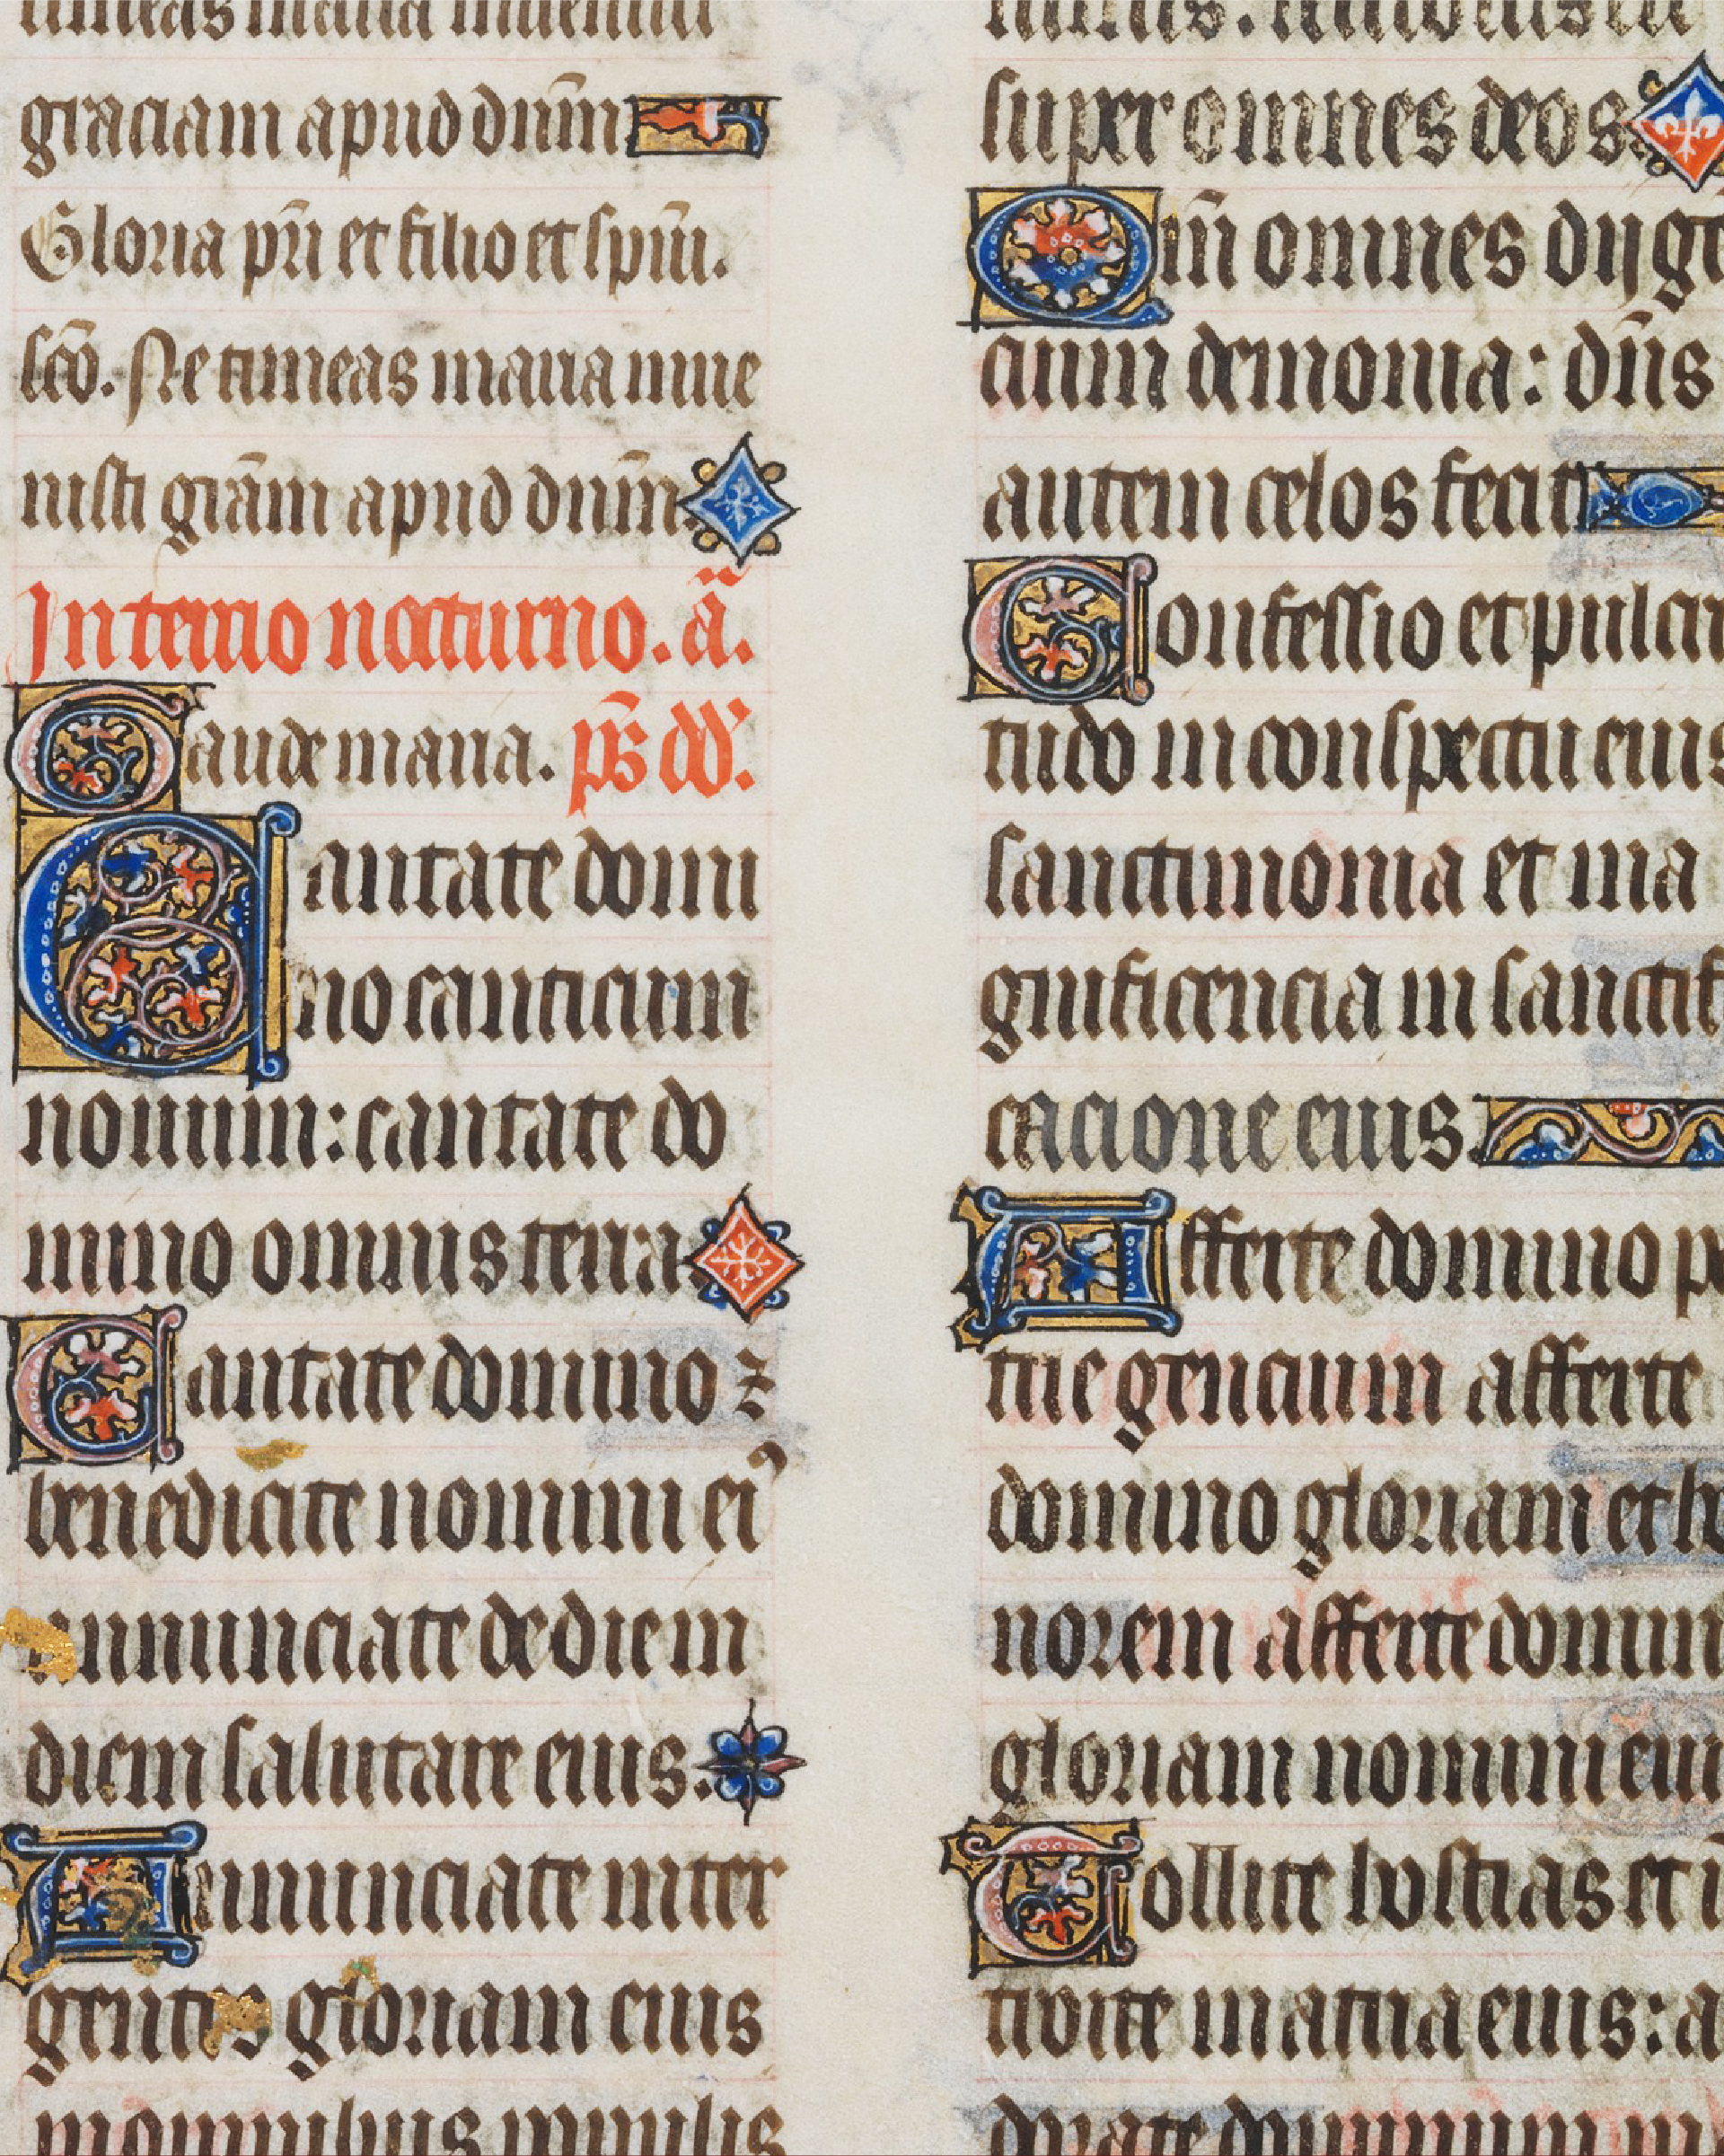 timeas maria invenisti
graciam apud dn̄m
Gloria pr̄i et filio et sp̄ui.
sc̄o. Ne timeas maria inve
nisti grām apud dn̄m
In tercio nocturno. ā.
Gaude maria. ps̄ dd̄.
Cantate domi
no canticum
novum: cantate do
mino omnis terra
Cantate domino ⁊
benedicite nomini eiꝰ
annunciate de die in
diem salutare eius.
Annunciate inter
gentes gloriam eius
in omnibus populis
super omnes deos
Qm̄ omnes dij gen
cium demonia: dn̄s
autem celos fecit
Confessio et pulcri
tudo in conspectu eius
sanctimonia et ma
gnificencia in sanctifi
cacione eius.
Afferte domino pa
trie gencium afferte
domino gloriam et ho
norem afferte domin
gloriam nomini eius
Tollite hostias et in
troite in atria eius: a
dorate dominum in